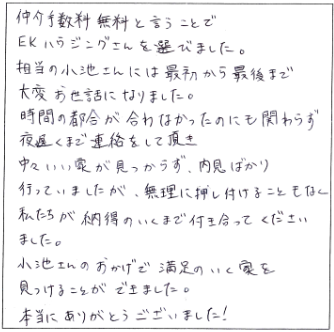 仲介手数料無料と言うことで
EKハウジングさんを選びました。
担当の小池さんには最初から最後まで
大変お世話になりました。
時間の都合が合わなかったのにも関わらず
夜遅くまで連絡をして頂き
中々いい家が見つからず、内見ばかり
行っていましたが、無理に押し付けることもなく
私たちが納得のいくまで付き合ってください
ました。
小池さんのおかげで満足のいく家を
見つけることができました。
本当にありがとうございました!